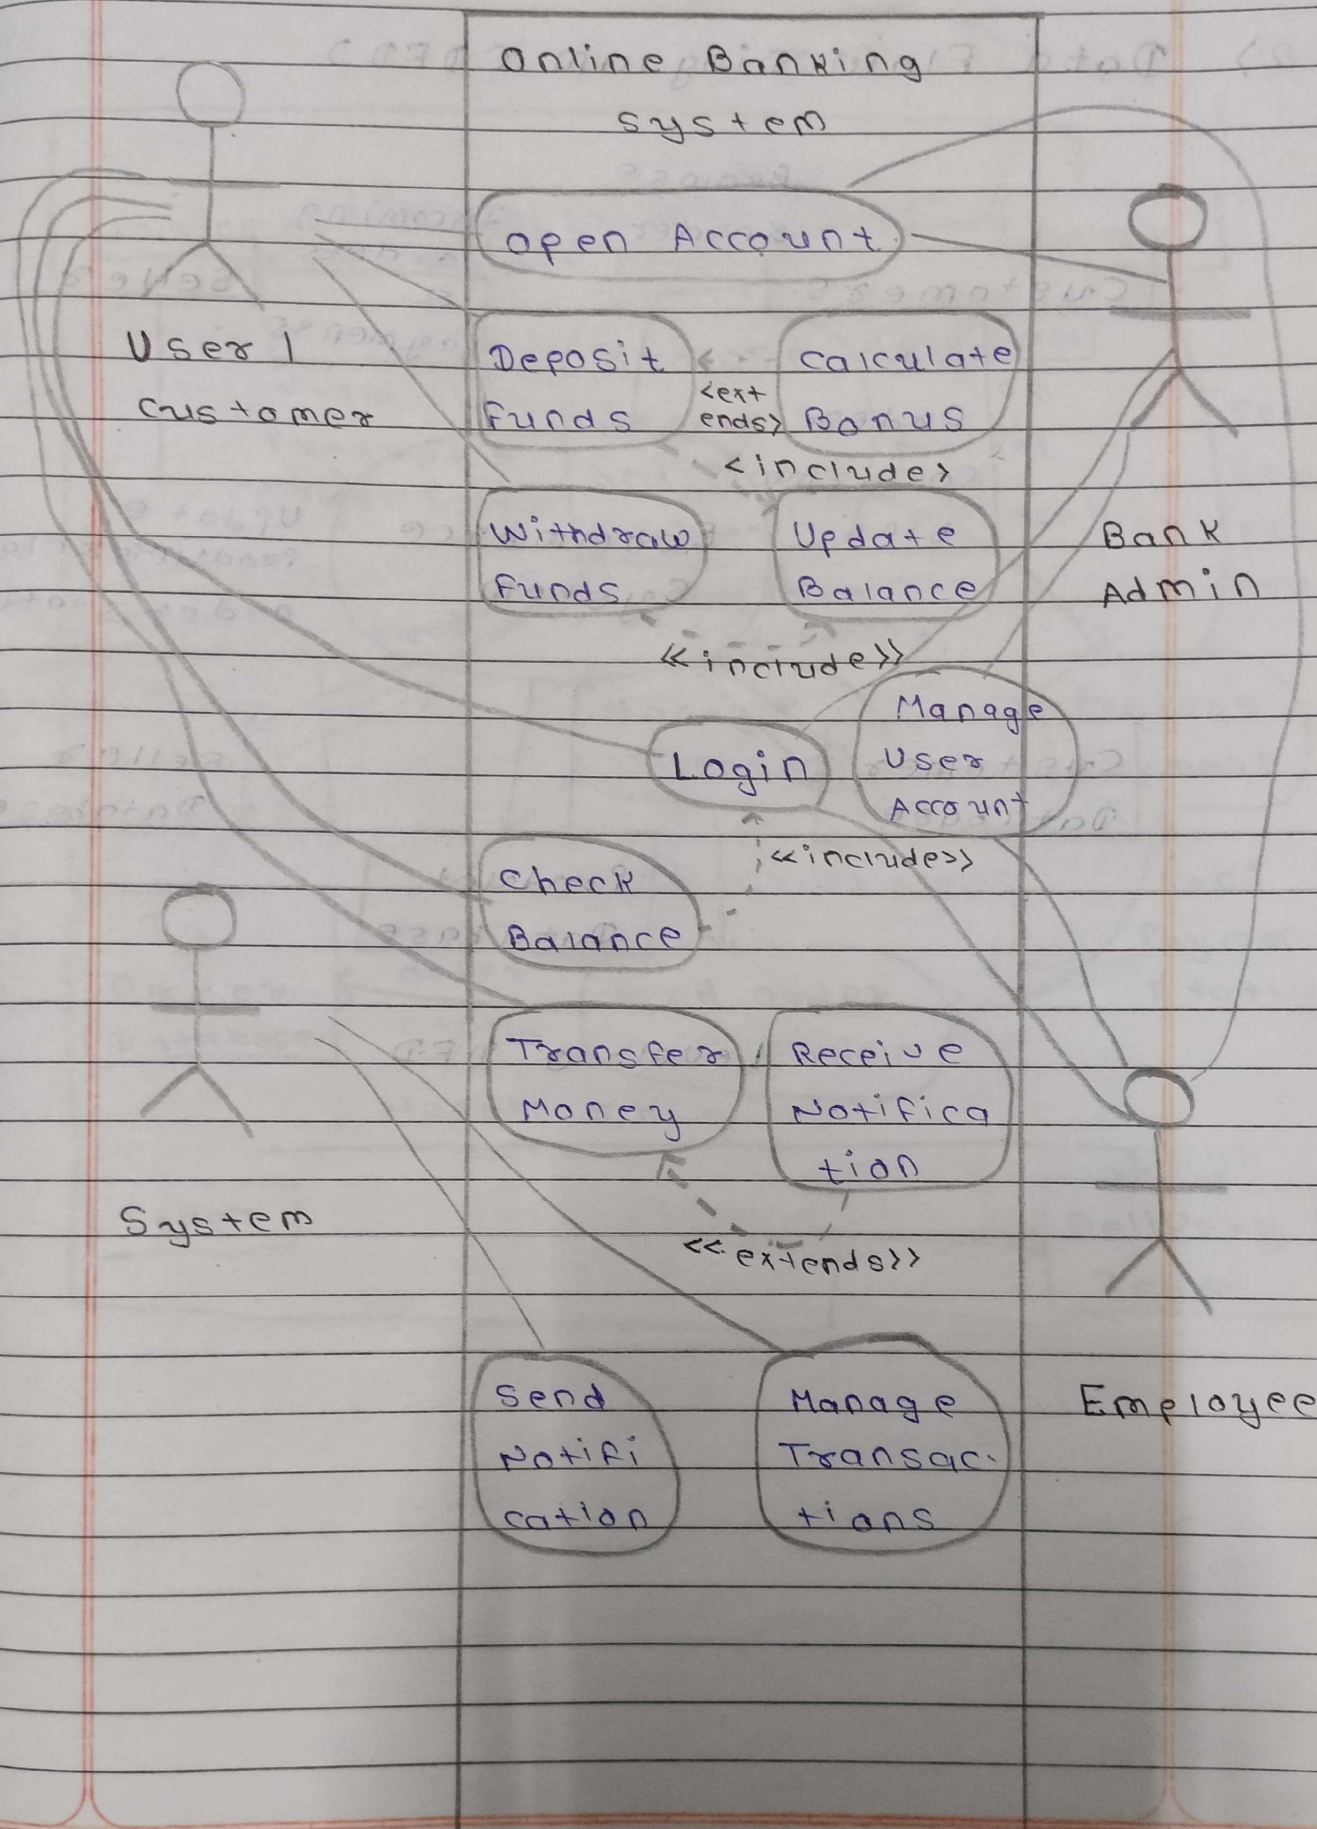 Online Banking
System
Open Account
User |
Customer
Deposit
Funds
<ext
ends>
Calculate
Bonus
<include>
Withdraw
Funds
Update
Balance
Bank
Admin
<<include>>
Login
Manage
User
Account
<<include>>
Check
Balance
Transfer
Money
Receive
Notifica
tion
System
<<extends>>
Send
Notifi
cation
Manage
Transac-
tions
Employee